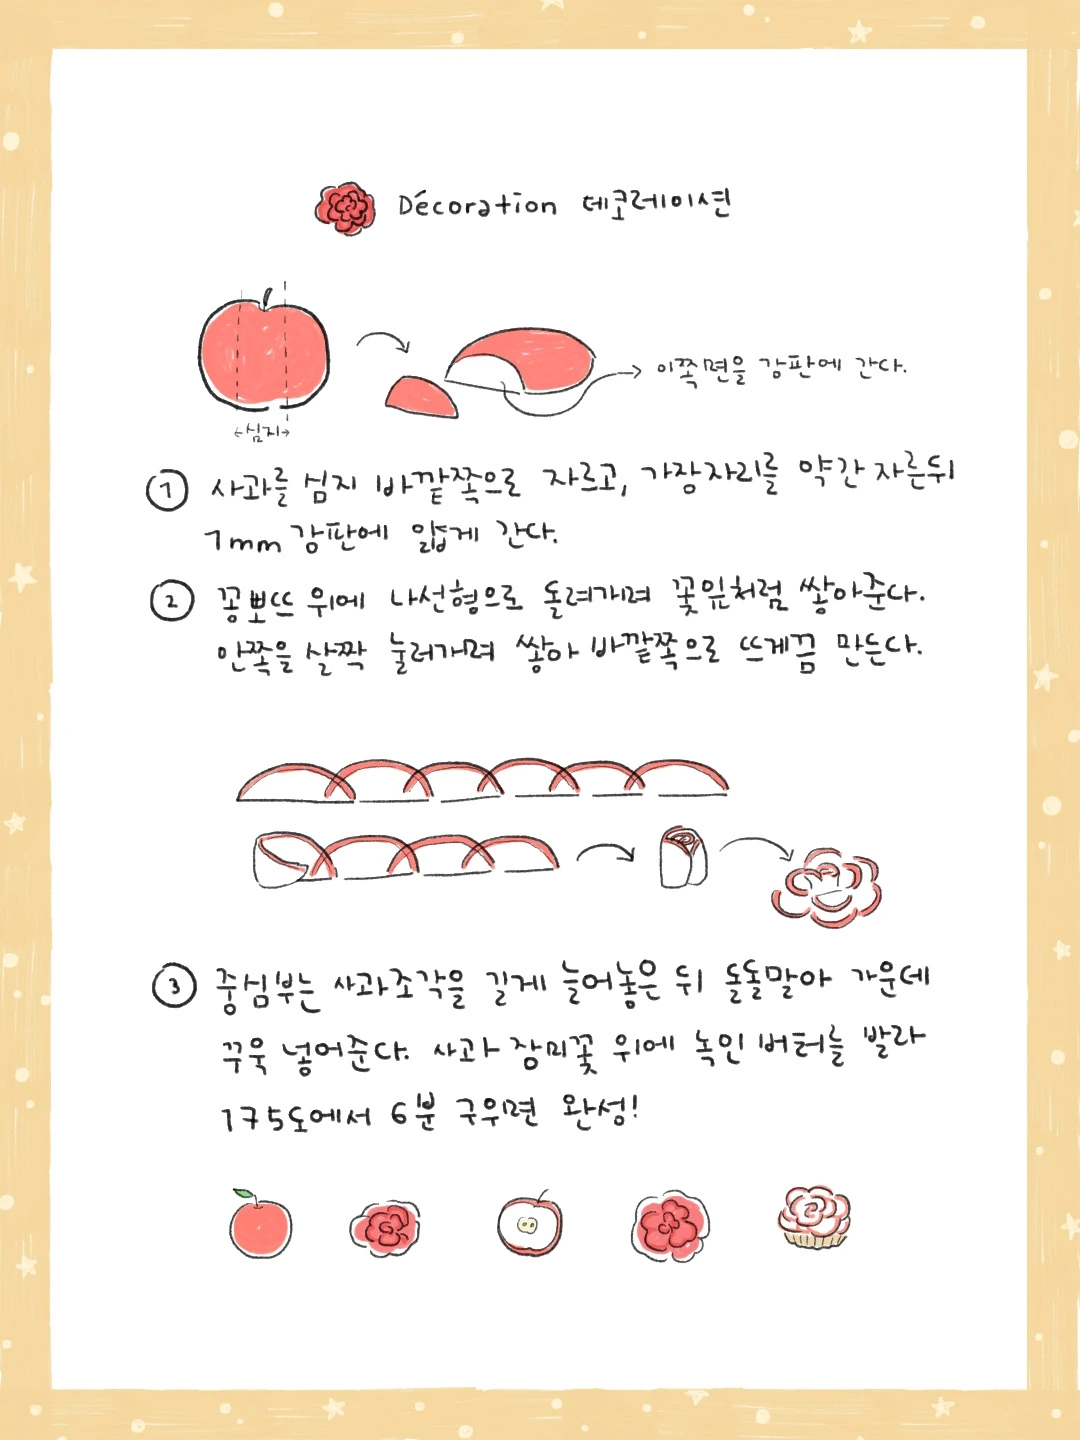 Décoration 데코레이션
이쪽면을 강판에 간다.
심지
① 사과를 심지 바깥쪽으로 자르고, 가장자리를 약간 자른뒤
1mm 강판에 얇게 간다.
② 꽁뽀뜨 위에 나선형으로 돌려가며 꽃잎처럼 쌓아준다.
안쪽을 살짝 눌러가며 쌓아 바깥쪽으로 뜨게끔 만든다.
③ 중심부는 사과조각을 길게 늘어놓은 뒤 돌돌말아 가운데
꾸욱 넣어준다. 사과 장미꽃 위에 녹인 버터를 발라
175도에서 6분 구우면 완성!